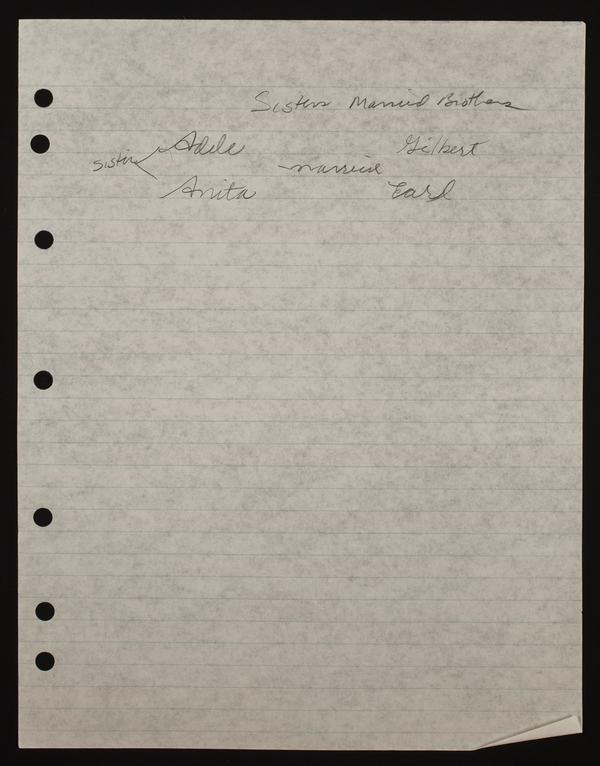 Sisters Married Brothers
Adele Gilbert
sisters married
Anita Earl